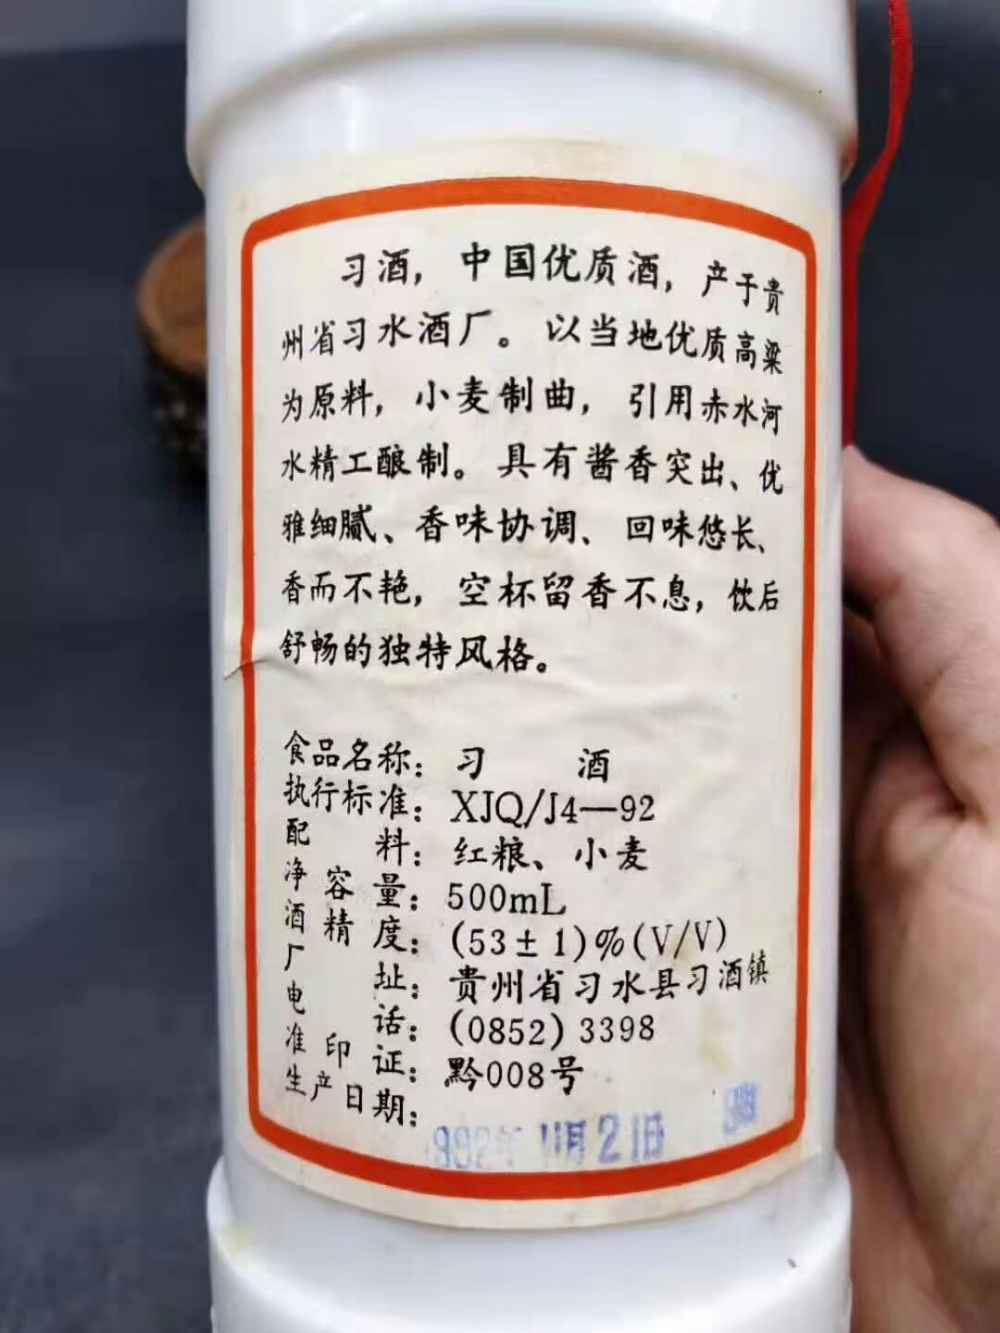 习酒，中国优质酒，产于贵
州省习水酒厂。以当地优质高粱
为原料，小麦制曲，引用赤水河
水精工酿制。具有酱香突出、优
雅细腻、香味协调、回味悠长、
香而不艳，空杯留香不息，饮后
舒畅的独特风格。
食品名称：习 酒
执行标准：XJQ/J4—92
配料：红粮、小麦
净容量：500mL
酒精度：(53±1)%(V/V)
厂址：贵州省习水县习酒镇
电话：(0852) 3398
准印证：黔008号
生产日期：
992年 11月21日